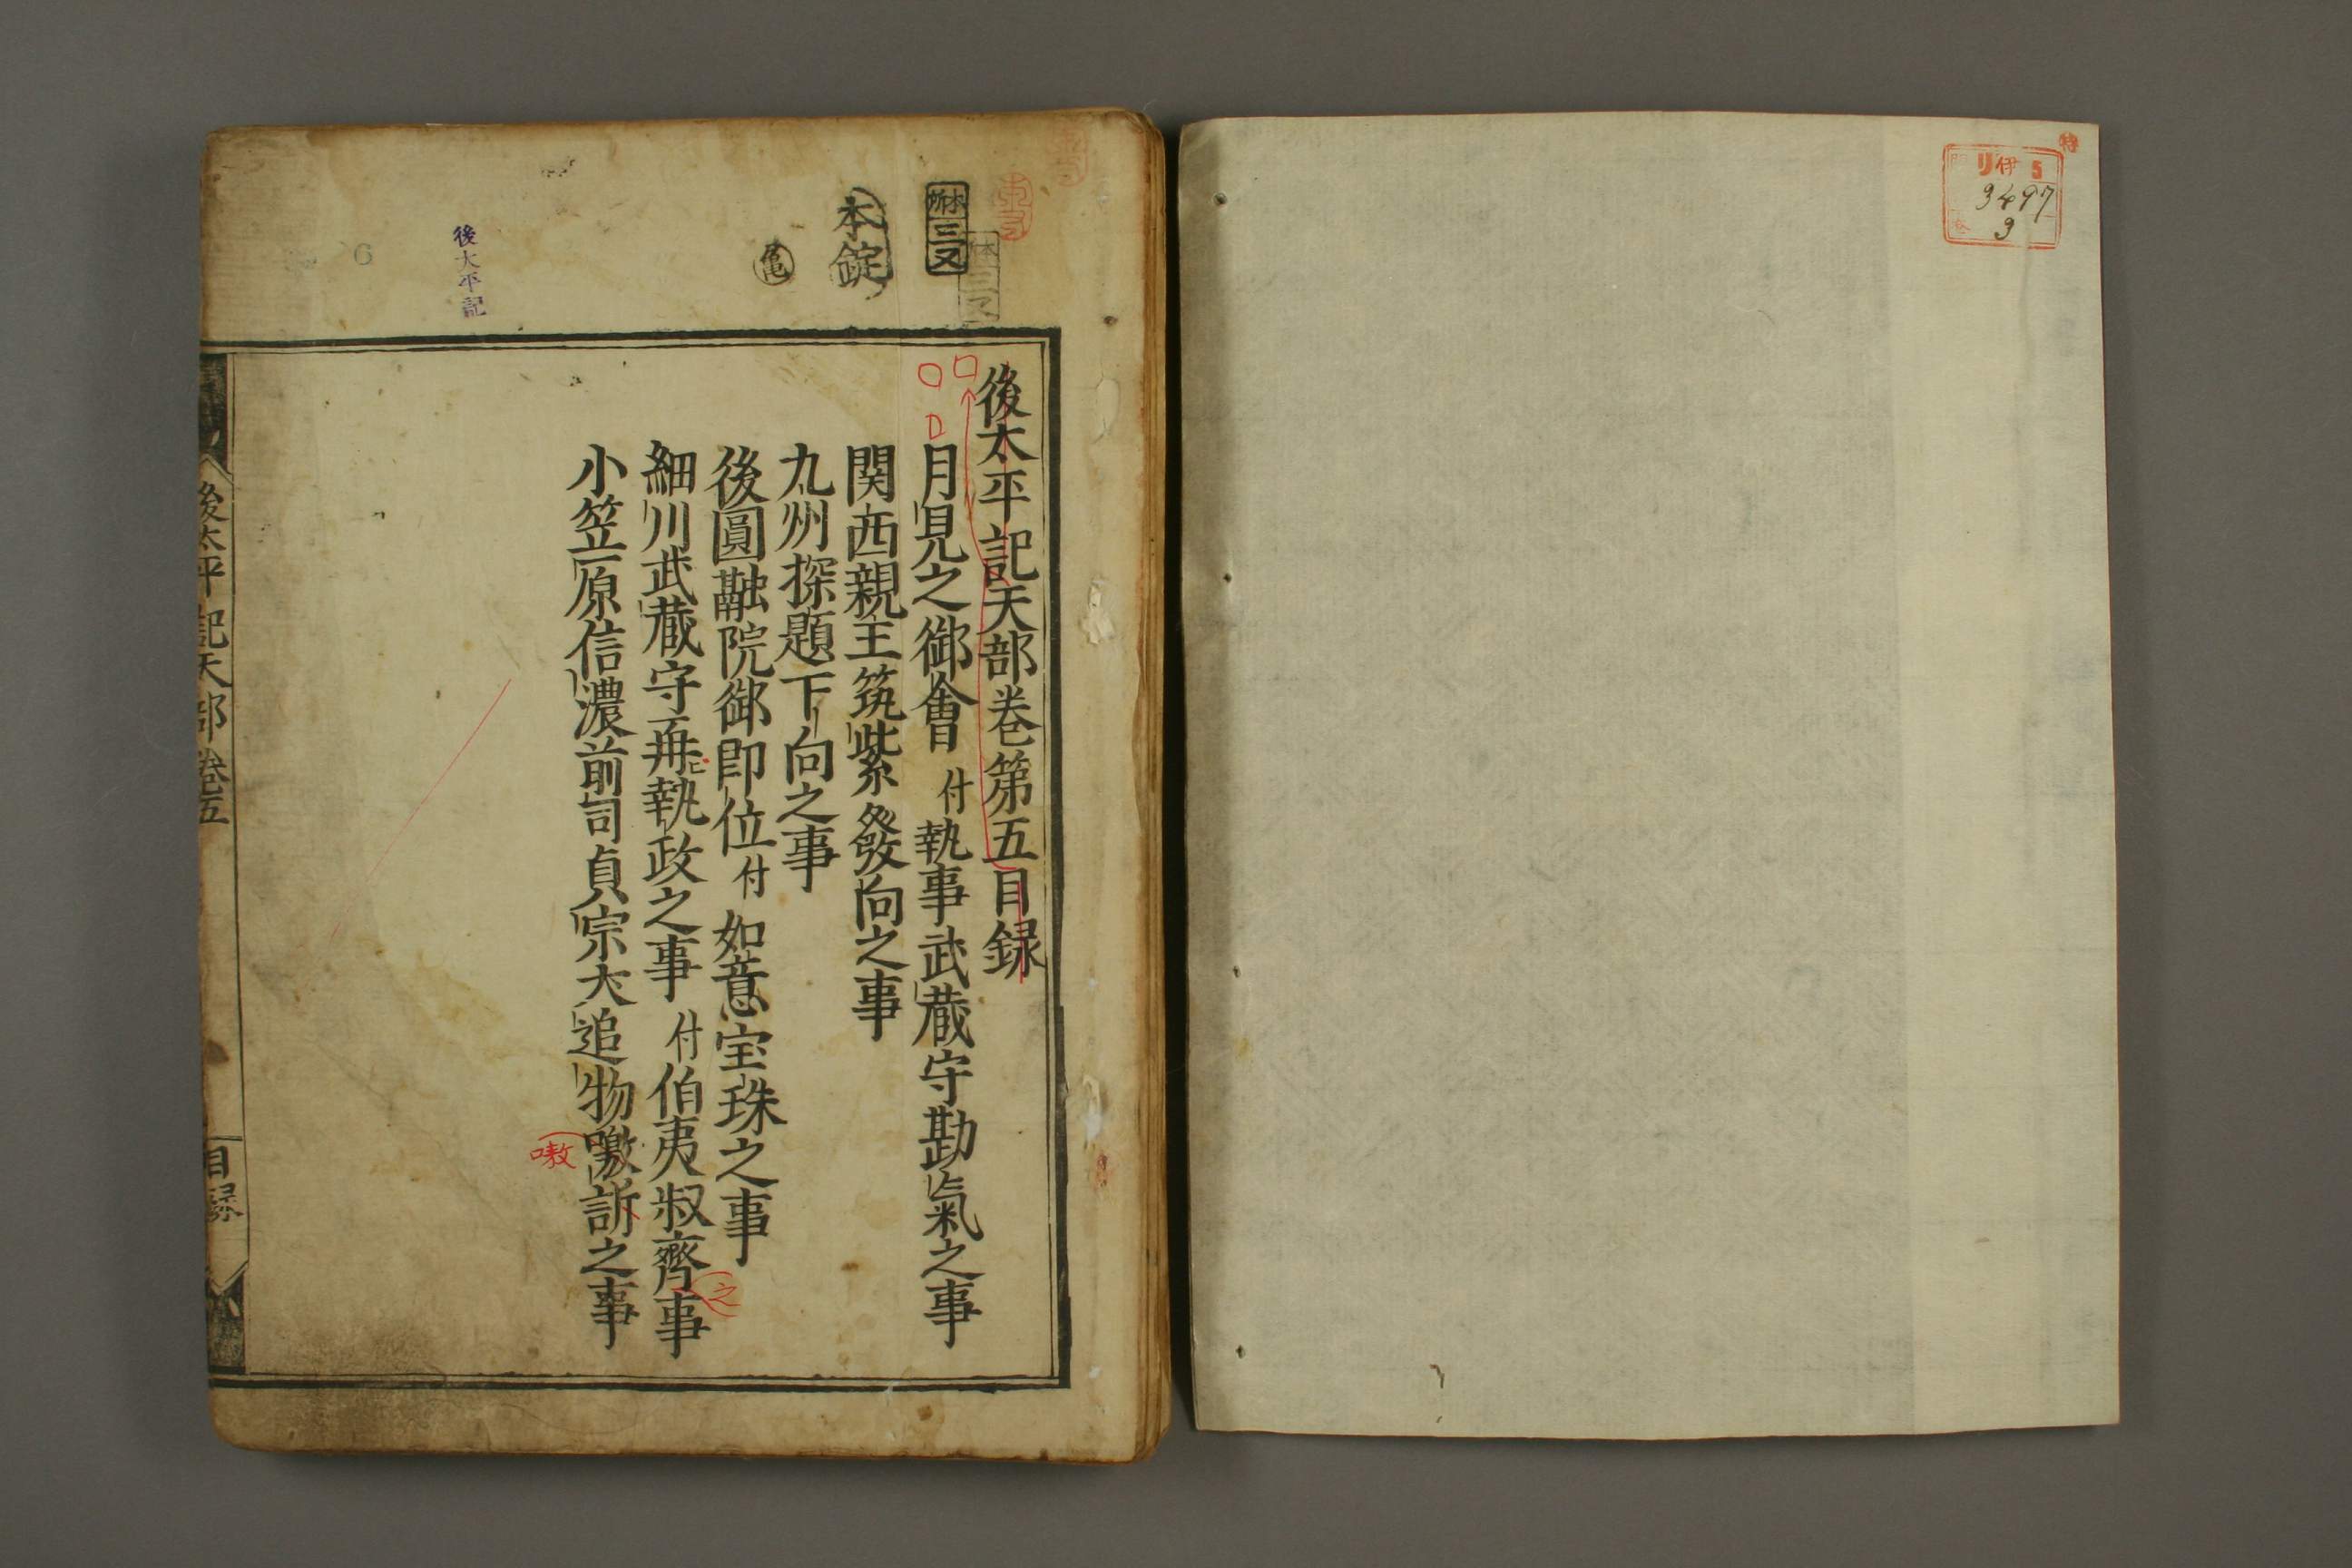 特
リ伊5
3497
9
本所
三又
本錠
亀
後太平記
6
後太平記天部巻第五目録
月見之御會 付執事武蔵守勘氣之事
関西親王筑紫發向之事
九州探題下向之事
後圓融院御即位 付如意宝珠之事
細川武蔵守再執政之事 付伯夷叔齊事
之
小笠原信濃前司貞宗犬追物噭訴之事
嗷
後太平記天部巻五
目録